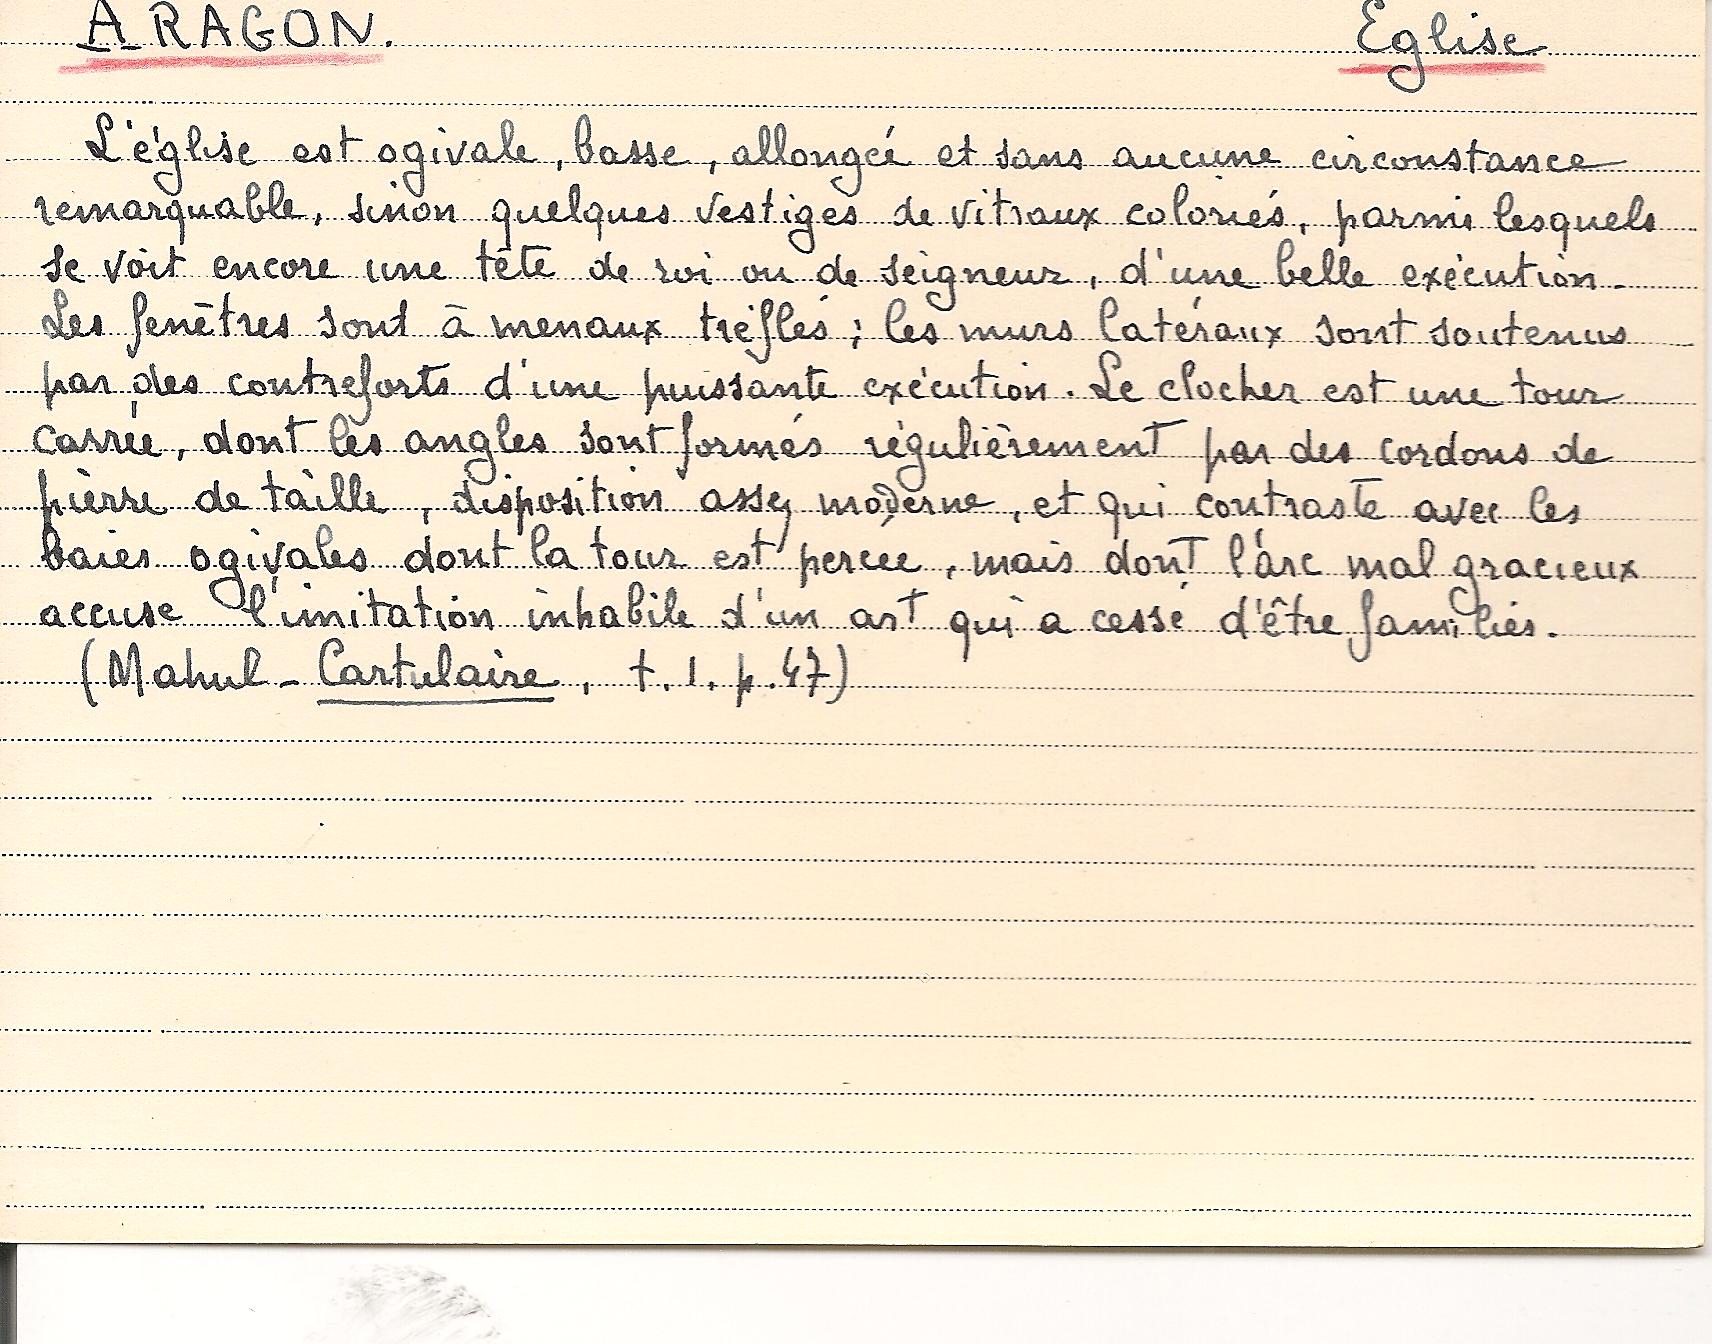 ARAGON. Eglise
L'église est ogivale, basse, allongée et sans aucune circonstance
remarquable, sinon quelques vestiges de vitraux coloriés, parmi lesquels
se voit encore une tête de roi ou de seigneur, d'une belle exécution.
Les fenêtres sont à menaux tréflés ; les murs latéraux sont soutenus
par des contreforts d'une puissante exécution. Le clocher est une tour
carrée, dont les angles sont formés régulièrement par des cordons de
pierre de taille, disposition assez moderne, et qui contraste avec les
baies ogivales dont la tour est percée, mais dont l'arc mal gracieux
accuse l'imitation inhabile d'un art qui a cessé d'être familier.
(Mahul - Cartulaire, t. 1. p. 47)